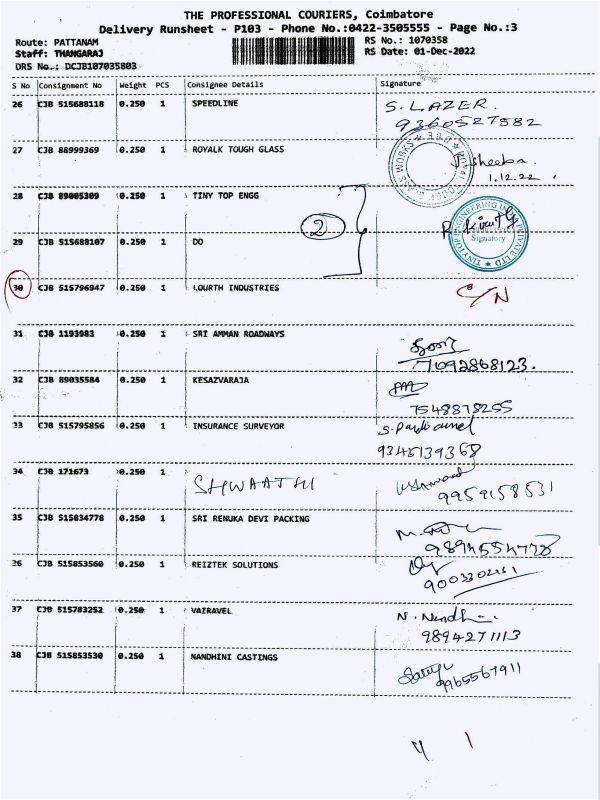 THE PROFESSIONAL COURIERS, Coimbatore
Delivery Runsheet - P103 - Phone No.:0422-3505555 - Page No.:3
Route: PATTANAM
RS No.: 1070358
Staff: THANGARAJ
RS Date: 01-Dec-2022
DRS No.: DCJB107035803
S No Consignment No Weight PCS Consignee Details Signature
26 CJB 515688118 0.250 1 SPEEDLINE S. LAZER.
9360527582
27 CJB 88999369 0.250 1 ROYALK TOUGH GLASS Sheeba.
1.12.22
28 CJB 89005309 0.250 1 TINY TOP ENGG
2
TINYTOP ENGINEERING INDIA PRIVATE LTD
Signatory
29 CJB 515688107 0.250 1 DO
30 CJB 515796947 0.250 1 LOURTH INDUSTRIES C/N
31 CJB 1193983 0.250 1 SRI AMMAN ROADWAYS
7092868123.
32 CJB 89035584 0.250 1 KESAZVARAJA
7548878255
33 CJB 515795856 0.250 1 INSURANCE SURVEYOR
9345139368
34 CJB 171673 0.250 1 SHWAATHI
9959158531
35 CJB 515834778 0.250 1 SRI RENUKA DEVI PACKING
9894554778
36 CJB 515853560 0.250 1 REIZTEK SOLUTIONS
9003302161
37 CJB 515783252 0.250 1 VAIRAVEL N. Nandh
9894271113
38 CJB 515853530 0.250 1 NANDHINI CASTINGS
9965567911